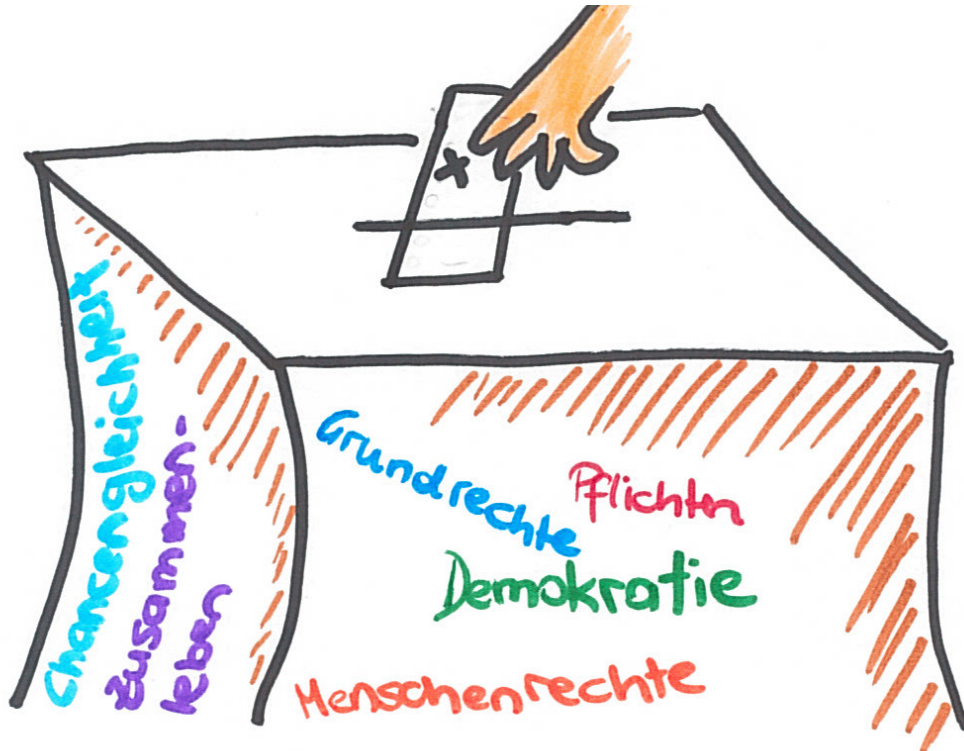 Chancengleichheit
Zusammen-
leben
Grundrechte
Pflichten
Demokratie
Menschenrechte